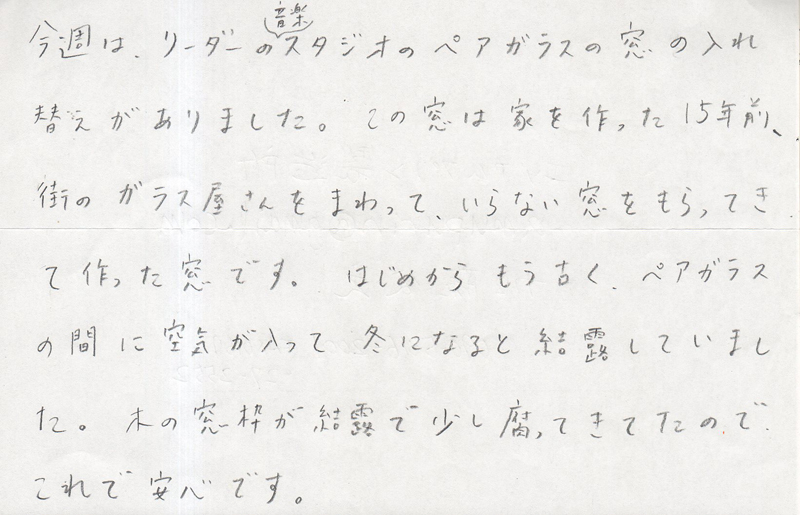 今週は、リーダーの音楽スタジオのペアガラスの窓の入れ
替えがありました。この窓は家を作った15年前、
街のガラス屋さんをまわって、いらない窓をもらってき
て作った窓です。はじめからもう古く、ペアガラス
の間に空気が入って冬になると結露していまし
た。木の窓枠が結露で少し腐ってきてたので、
これで安心です。